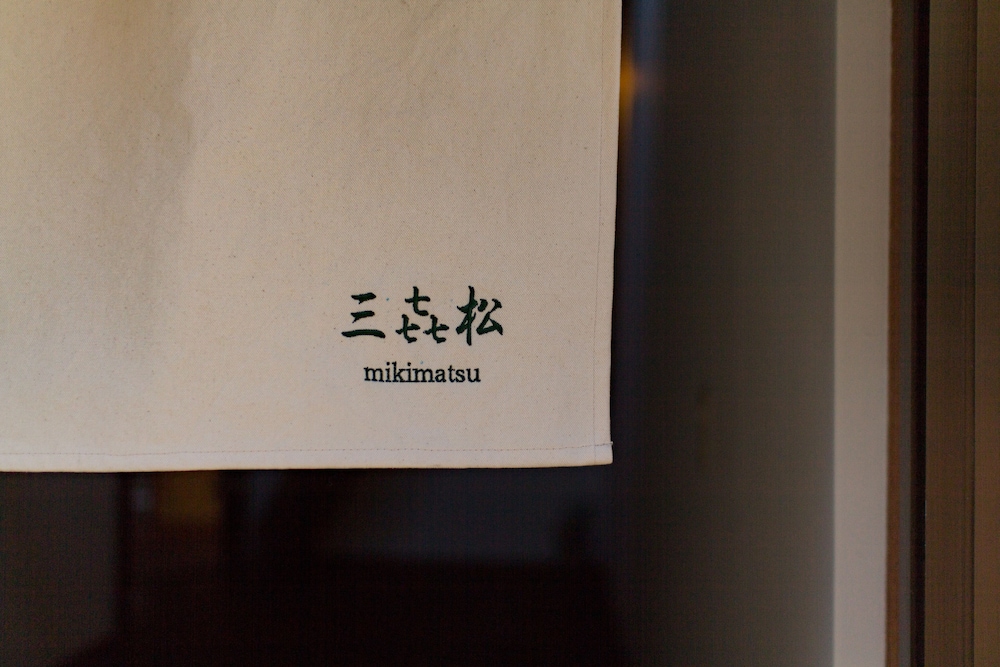 三㐂松
mikimatsu